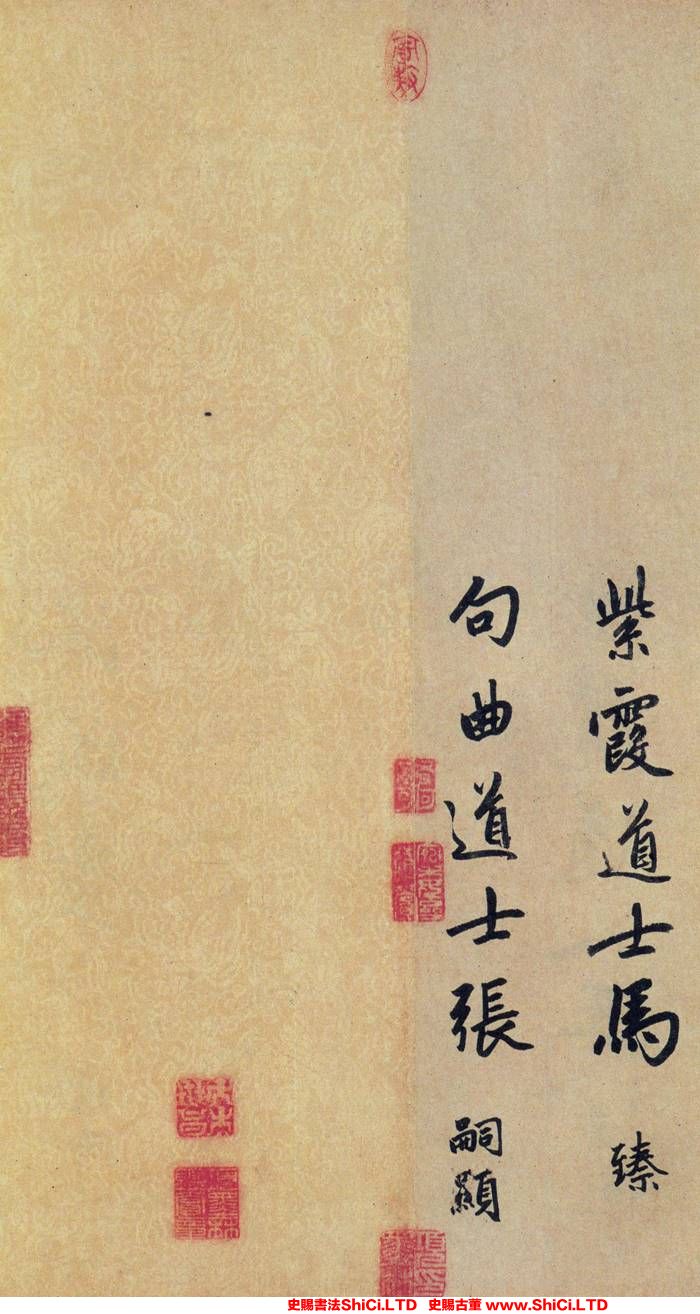 紫霞道士馬 臻
句曲道士張 嗣顯
史賜書法ShiCi.LTD 史賜古董 www.ShiCi.LTD